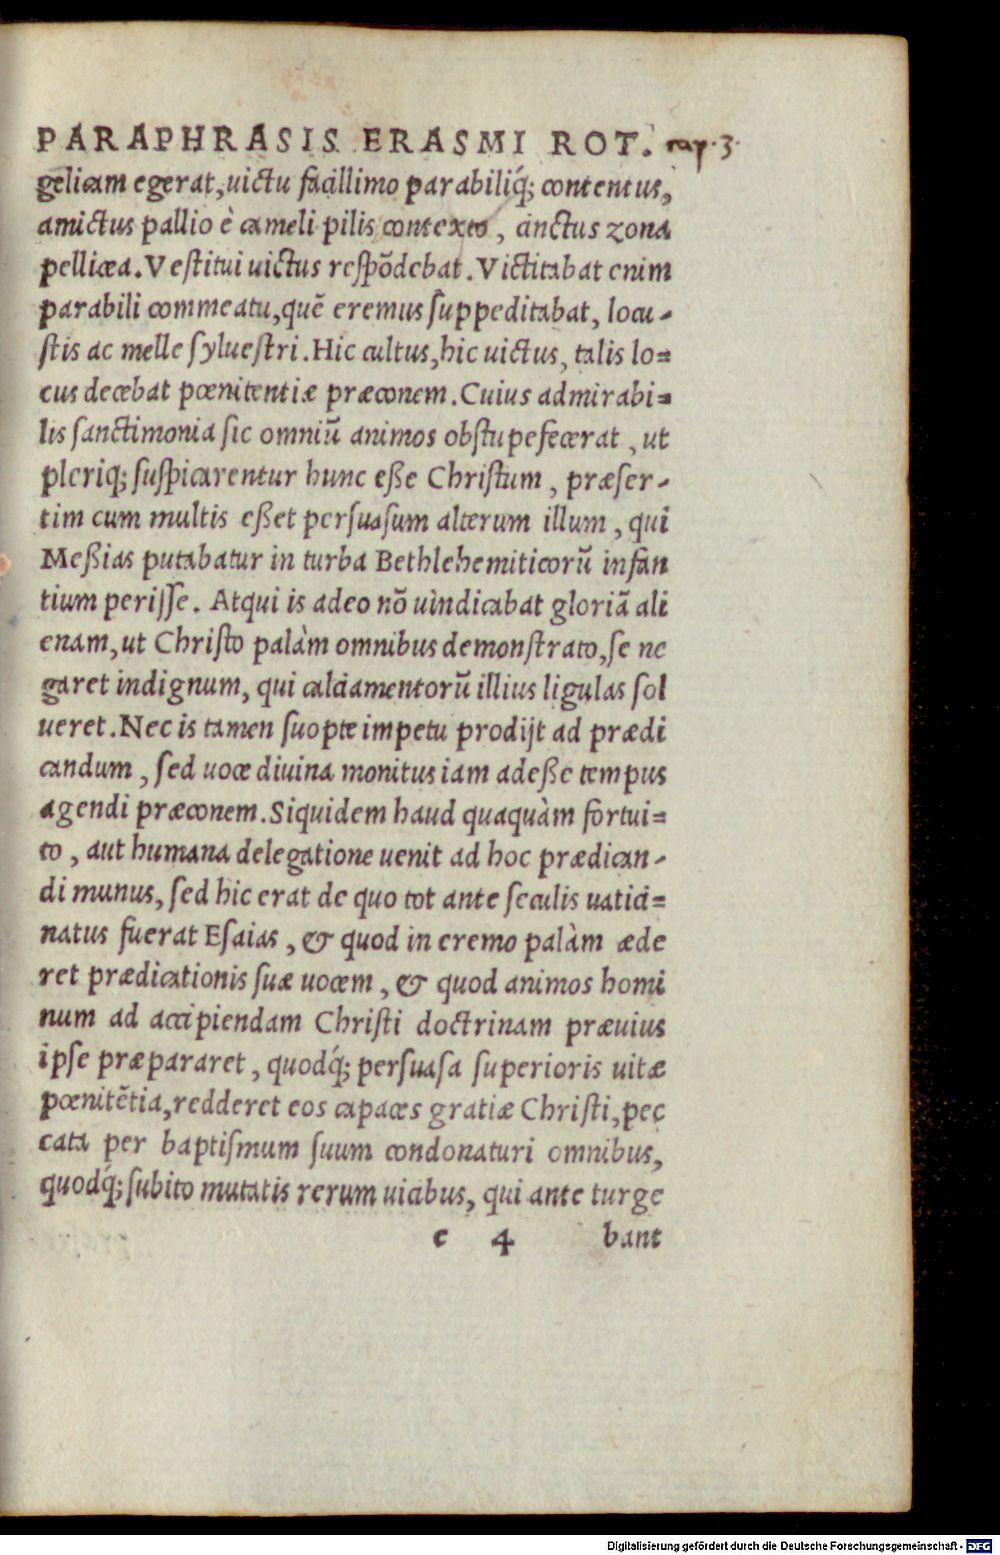 PARAPHRASIS ERASMI ROT. cap. 3.
gelicam egerat, uictu facillimo parabiliq́; contentus,
amictus pallio è cameli pilis contexto, cinctus zona
pellicea. Vestitui uictus respōdebat. Victitabat enim
parabili commeatu, quē eremus suppeditabat, locu-
stis ac melle syluestri. Hic cultus, hic uictus, talis lo=
cus decebat pœnitentiæ præconem. Cuius admirabi=
lis sanctimonia sic omniū animos obstupefecerat, ut
pleriq; suspicarentur hunc eße Christum, præser-
tim cum multis eßet persuasum alterum illum, qui
Meßias putabatur in turba Bethlehemiticorū infan
tium perisse. Atqui is adeo nō uindicabat gloriā ali
enam, ut Christo palàm omnibus demonstrato, se ne
garet indignum, qui calciamentorū illius ligulas sol
ueret. Nec is tamen suopte impetu prodijt ad prædi
candum, sed uoce diuina monitus iam adeße tempus
agendi præconem. Siquidem haud quaquàm fortui=
to, aut humana delegatione uenit ad hoc prædican-
di munus, sed hic erat de quo tot ante seculis uatici=
natus fuerat Esaias, & quod in eremo palàm æde
ret prædicationis suæ uocem, & quod animos homi
num ad accipiendam Christi doctrinam præuius
ipse præpararet, quodq́; persuasa superioris uitæ
pœnitētia, redderet eos capaces gratiæ Christi, pec
cata per baptismum suum condonaturi omnibus,
quodq́; subito mutatis rerum uicibus, qui ante turge
c 4 bant
Digitalisierung gefördert durch die Deutsche Forschungsgemeinschaft - DFG